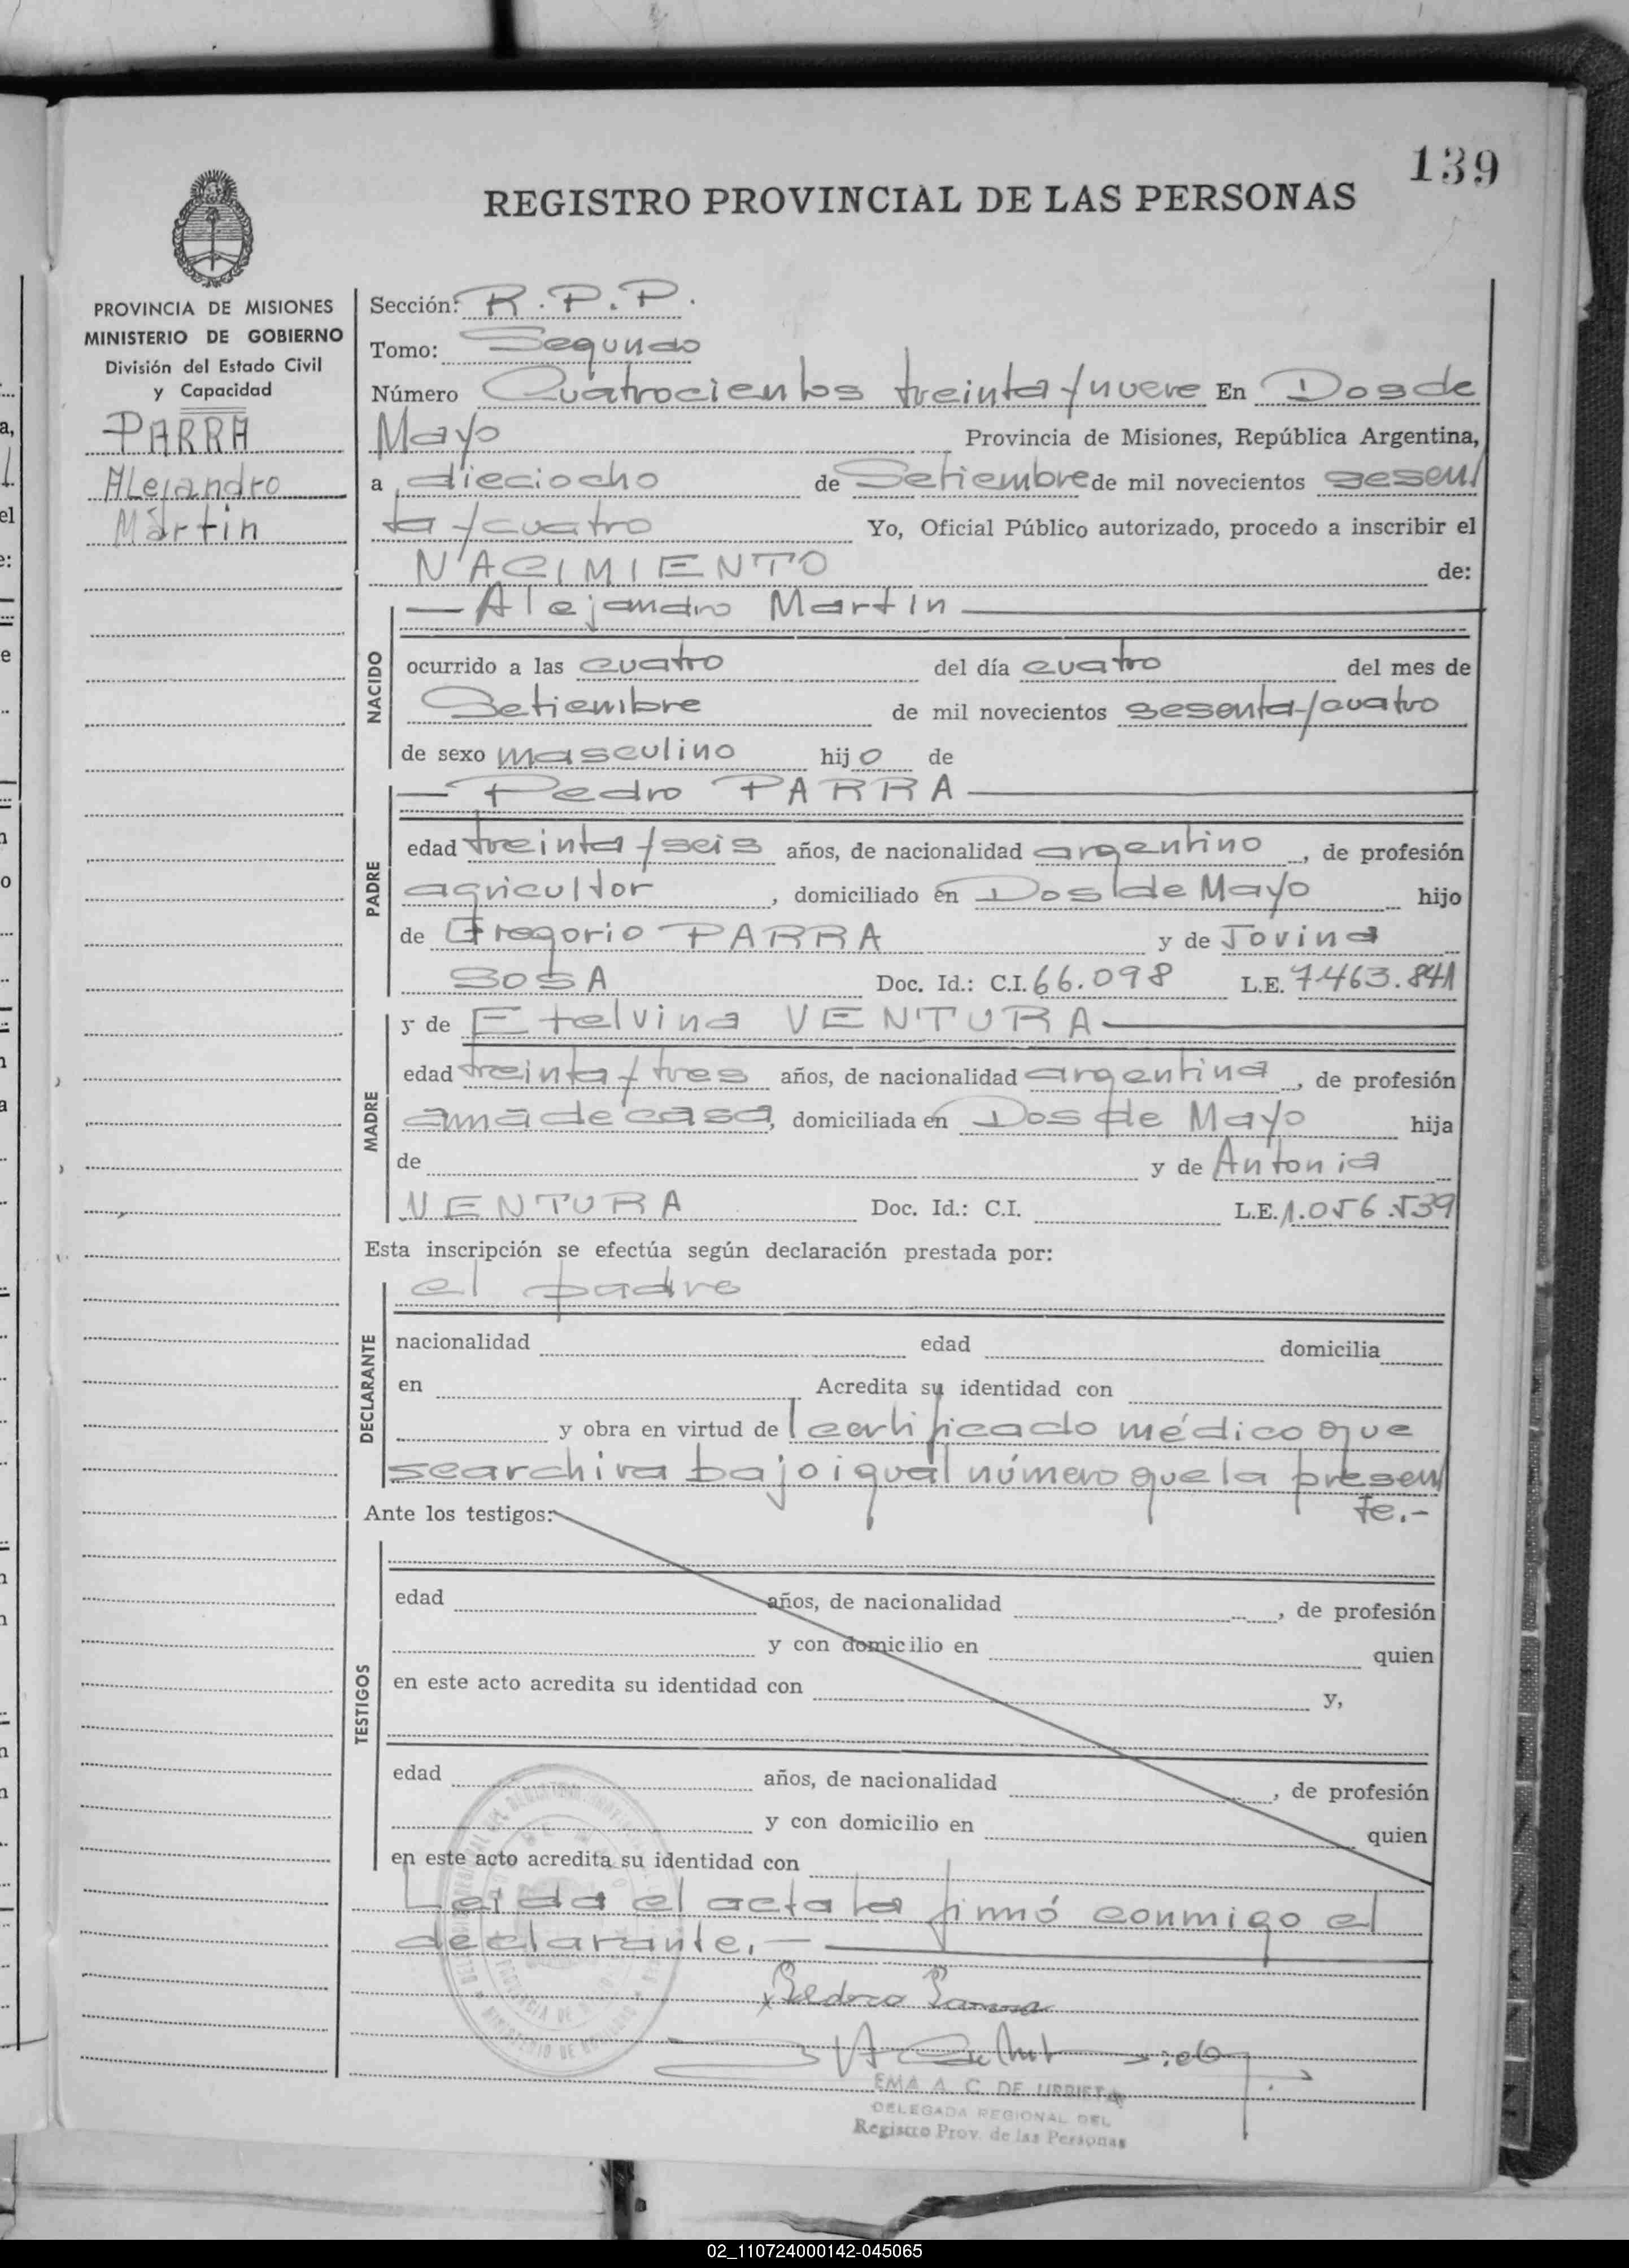 139
REGISTRO PROVINCIAL DE LAS PERSONAS
PROVINCIA DE MISIONES
MINISTERIO DE GOBIERNO
División del Estado Civil
y Capacidad
PARRA
Alejandro
Martin
Sección: R.P.P.
Tomo: Segundo
Número Cuatrocientos treinta/nueve En Dos de
Mayo Provincia de Misiones, República Argentina,
a dieciocho de Setiembre de mil novecientos sesen/
ta/cuatro Yo, Oficial Público autorizado, procedo a inscribir el
NACIMIENTO de:
NACIDO
— Alejandro Martin —
ocurrido a las cuatro del día cuatro del mes de
Setiembre de mil novecientos sesenta/cuatro
de sexo masculino hijo de
PADRE
— Pedro PARRA —
edad treinta/seis años, de nacionalidad argentino, de profesión
agricultor, domiciliado en Dos de Mayo hijo
de Gregorio PARRA y de Jovina
SOSA Doc. Id.: C.I. 66.098 L.E. 7.463.841
MADRE
y de Etelvina VENTURA —
edad treinta/tres años, de nacionalidad argentina, de profesión
ama de casa, domiciliada en Dos de Mayo hija
de y de Antonia
VENTURA Doc. Id.: C.I. L.E. 1.056.539
Esta inscripción se efectúa según declaración prestada por:
DECLARANTE
el padre
nacionalidad edad domicilia
en Acredita su identidad con
y obra en virtud de certificado médico que
se archiva bajo igual número que la presen/
te.-
Ante los testigos:
TESTIGOS
edad años, de nacionalidad , de profesión
y con domicilio en quien
en este acto acredita su identidad con y,
edad años, de nacionalidad , de profesión
y con domicilio en quien
en este acto acredita su identidad con
Leida el acta la firmó conmigo el
declarante.—
Pedro Parra
EMA A. C. DE URRIETA
DELEGADA REGIONAL DEL
Registro Prov. de las Personas
02_110724000142-045065